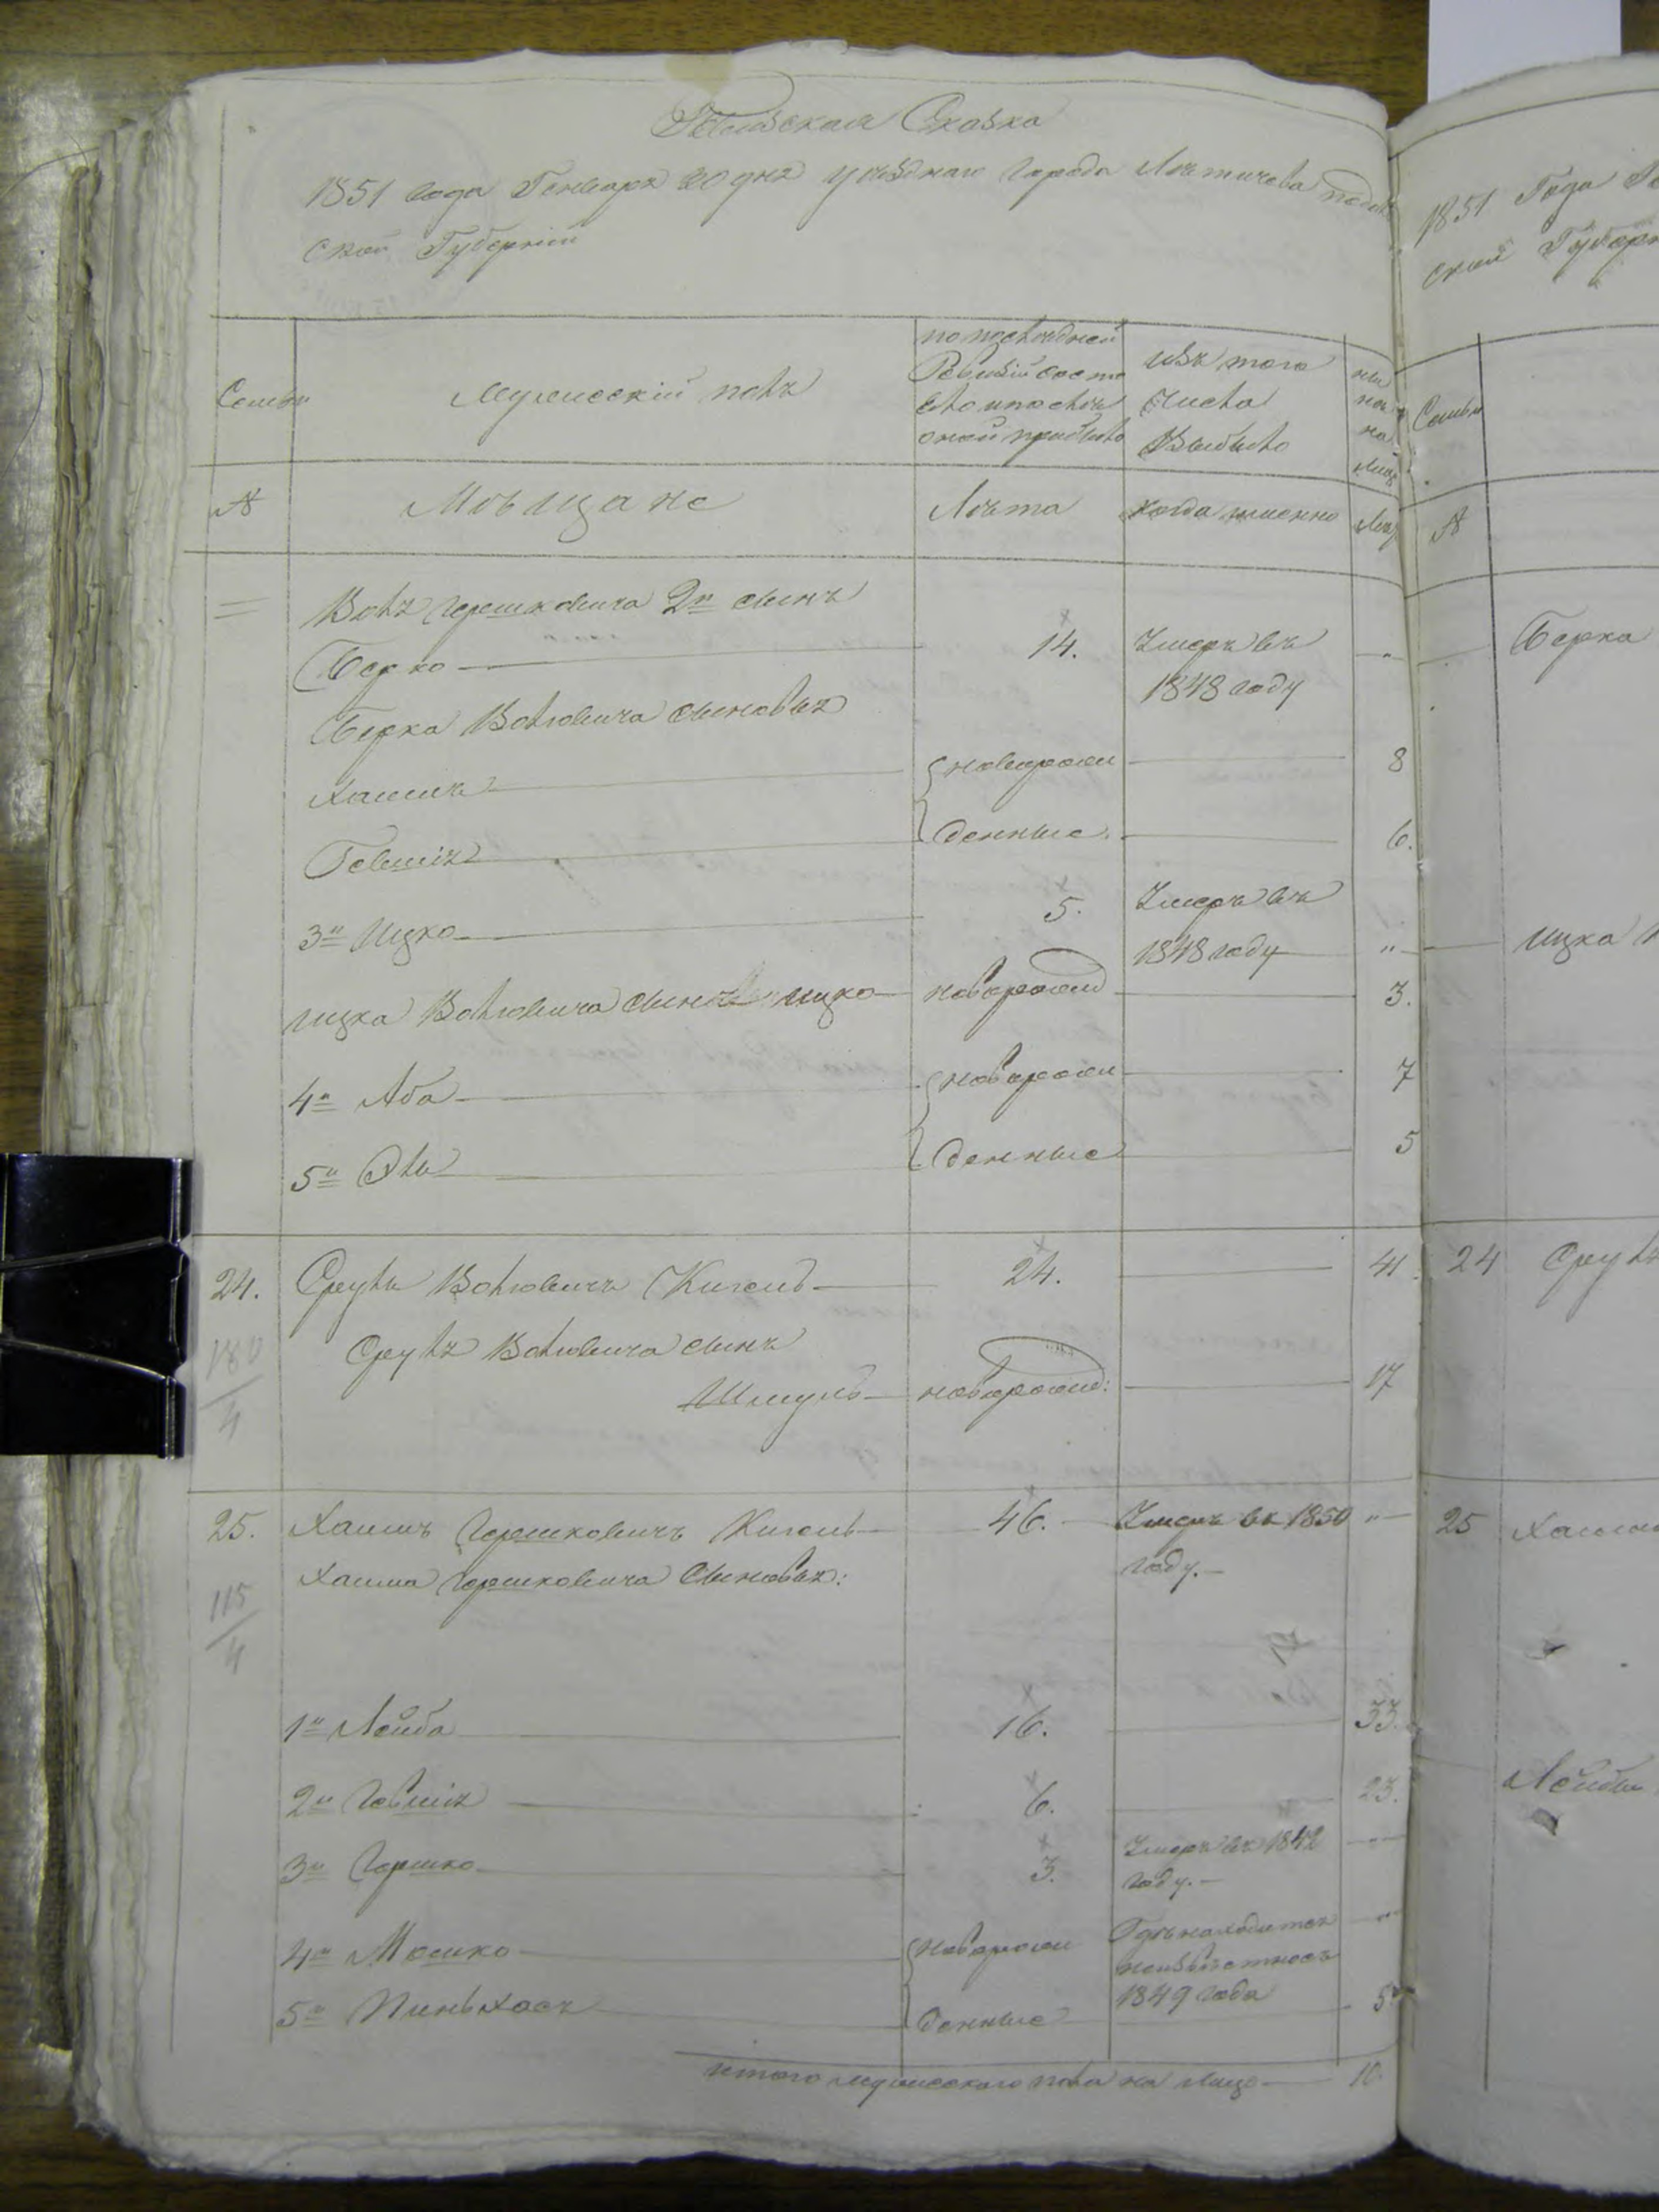 Ревизская Сказка
1851 года Генваря 20 дня уѣзднаго Города Лѣтичева Подоль
ской Губерніи
Семьи
Мужескій полъ
по послѣдней
Ревизіи состо
яло и послѣ
оной прибыло
изъ того
Числа
Выбыло
ны
нѣ
на
лице
№
Мѣщане
Лѣта
когда именно
Лѣт
Волъ Гершковича 2й сынъ
Берко 14. Умеръ въ „
1848 году
Берка Вольковича сыновья
Хаимъ новорож 8
Гевшія денные 6.
3й Ицко 5. Умеръ въ
1848 году „
Ицка Вольковича сынъ Ицко новорожд 3.
4й Аба новорож 7
5й Эль денные 5
24. Сруль Вольковичъ Кигель 24. 41.
180
4
Сруля Вольковича сынъ
Шмуль новорожд: 17
25. Хаимъ Гершковичъ Кигель 46. Умеръ въ 1850 „
Хаима Гершковича Сыновья: году.
115
4
1й Лейба 16. 33.
2й Гевшія 6. 23.
3й Гершко 3. Умеръ въ 1842 „
году.
4й Мошко новорож Гдѣ находится „
неизвѣстно съ
1849 года
5й Пиньхасъ денные 5
итого мужескаго пола на лице 10.
1851 Года Ге
ской Губерн
Семьи
№
Берка
Ицка
24 Сруля
25 Хаима
Лейбы